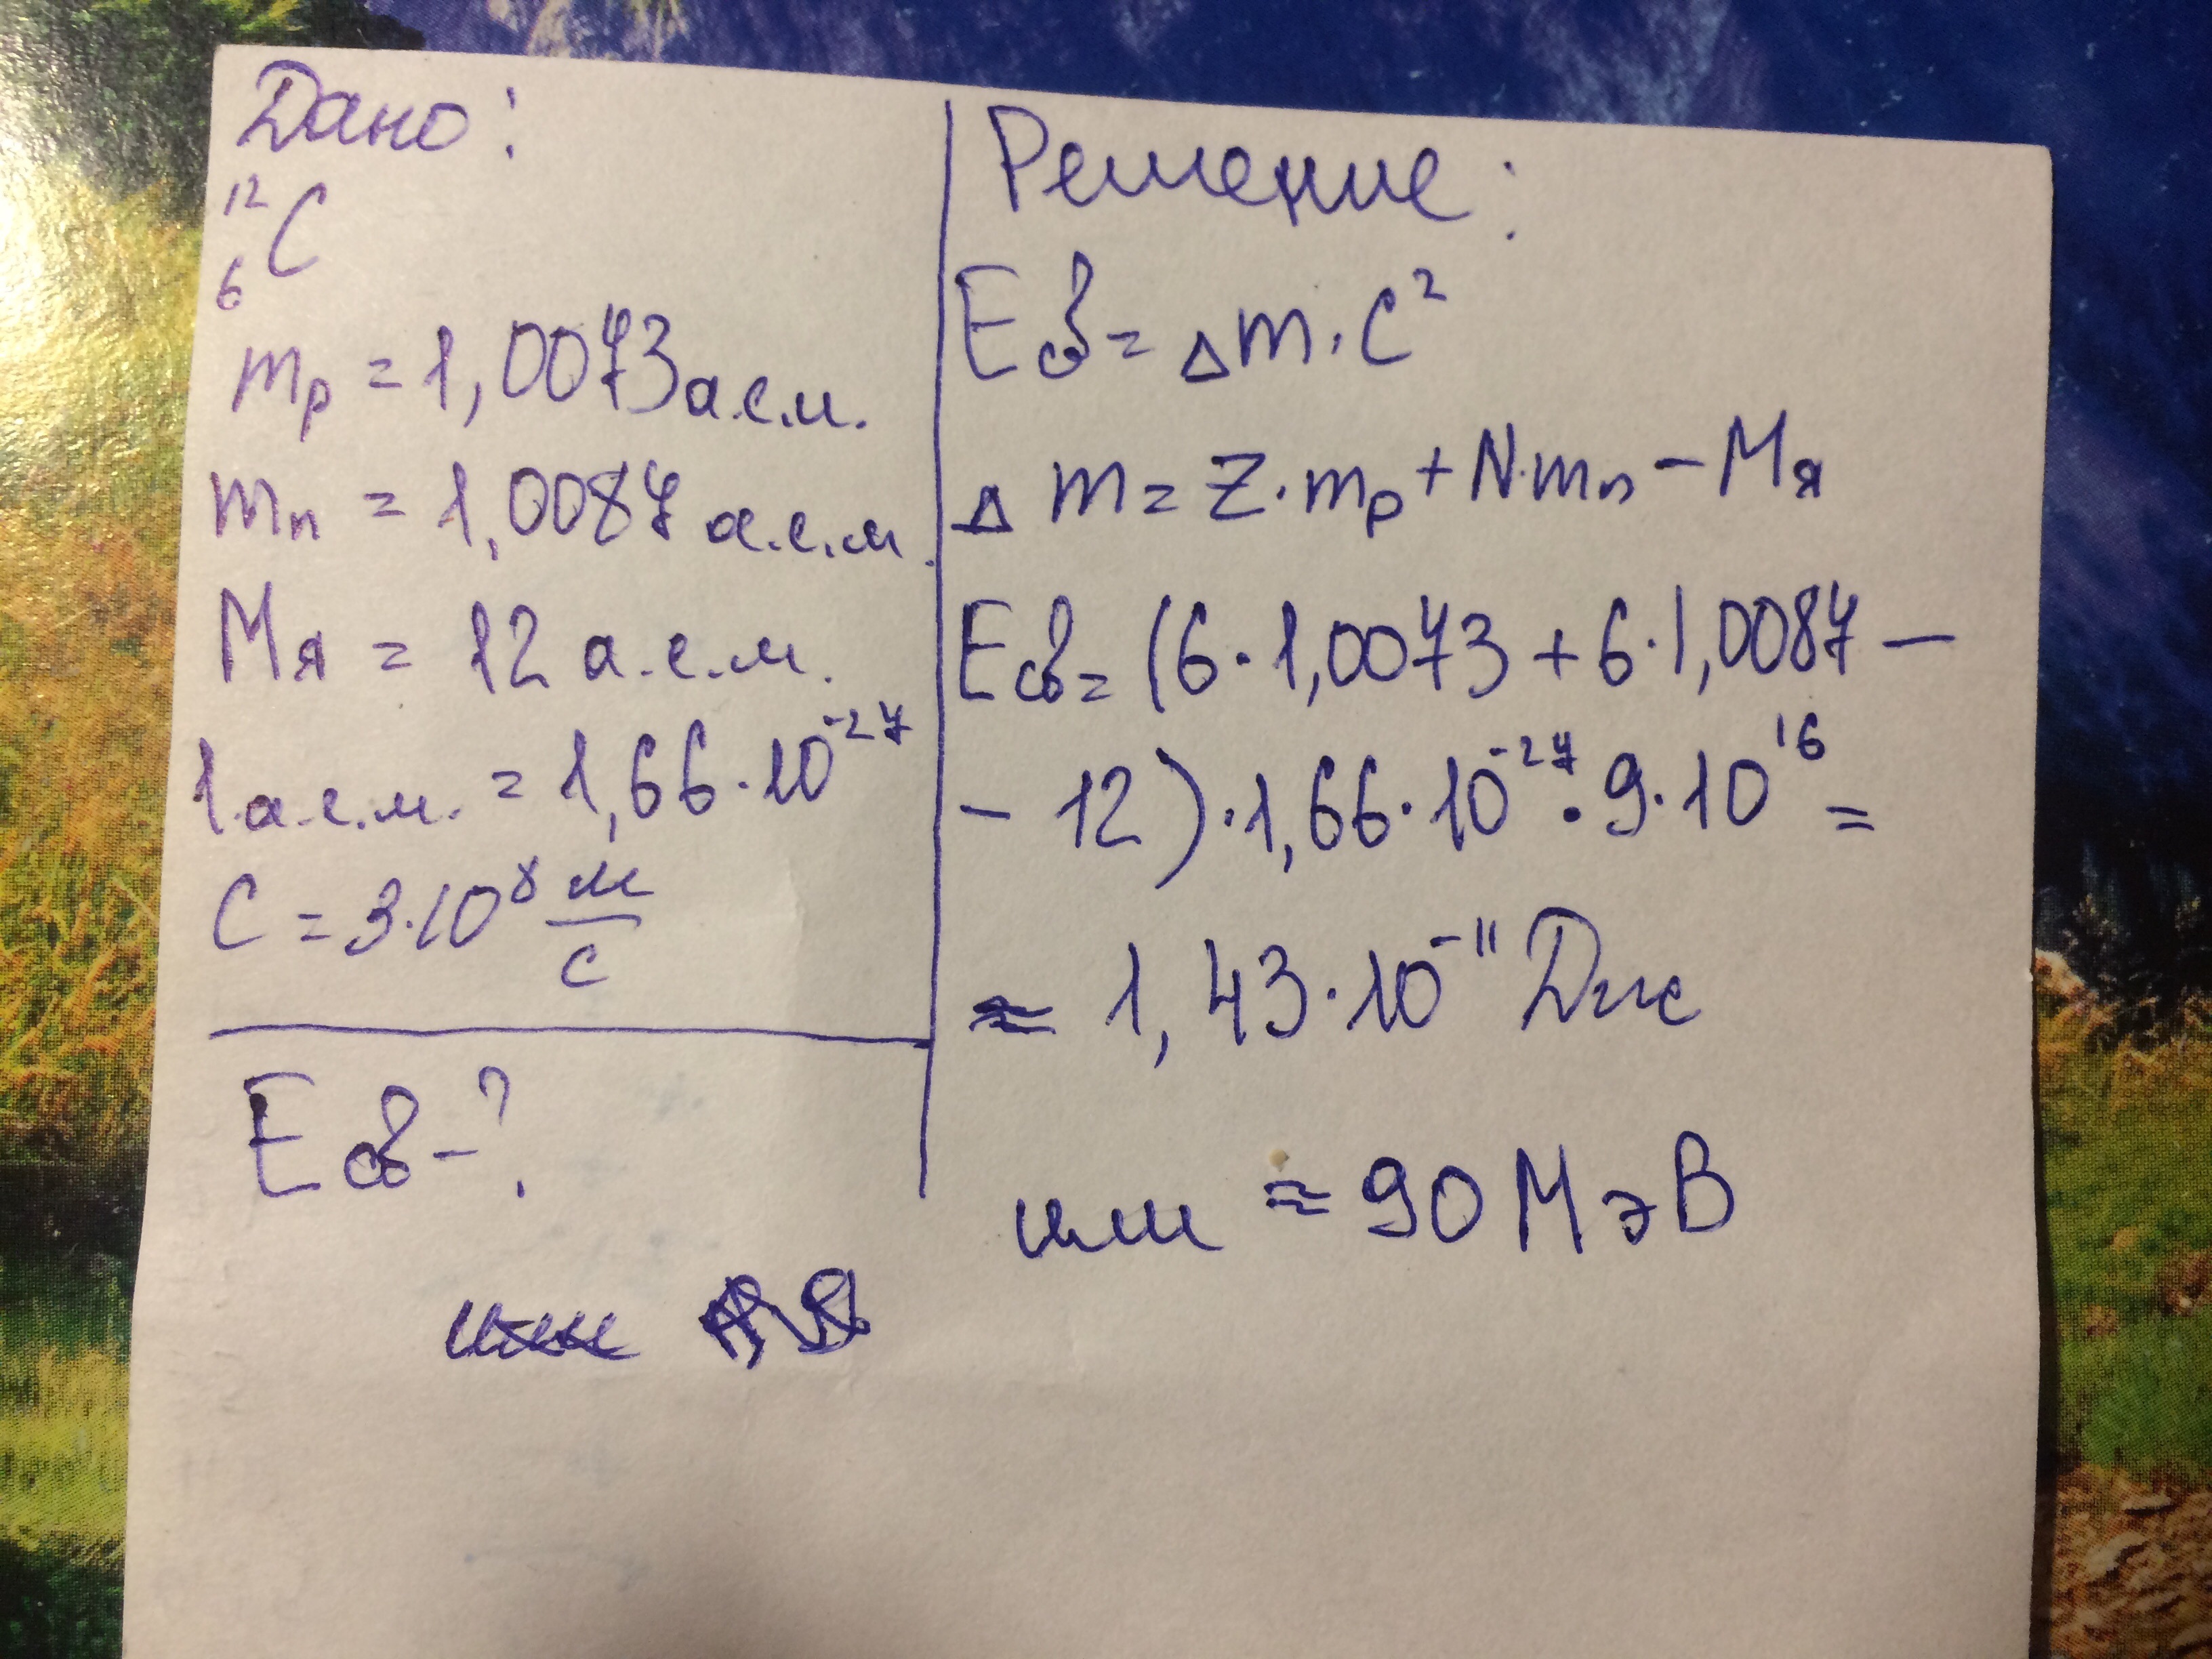 Дано:
¹²₆C
mp = 1,0073 а.е.м.
mn = 1,0087 а.е.м.
Mя = 12 а.е.м.
1 а.е.м. = 1,66·10⁻²⁷
C = 3·10⁸ м/с
Eсв - ?
Решение:
Eсв = Δm·C²
Δm = Z·mp + N·mn - Mя
Eсв = (6·1,0073 + 6·1,0087 -
- 12)·1,66·10⁻²⁷·9·10¹⁶ =
≈ 1,43·10⁻¹¹ Дж
или ≈ 90 МэВ